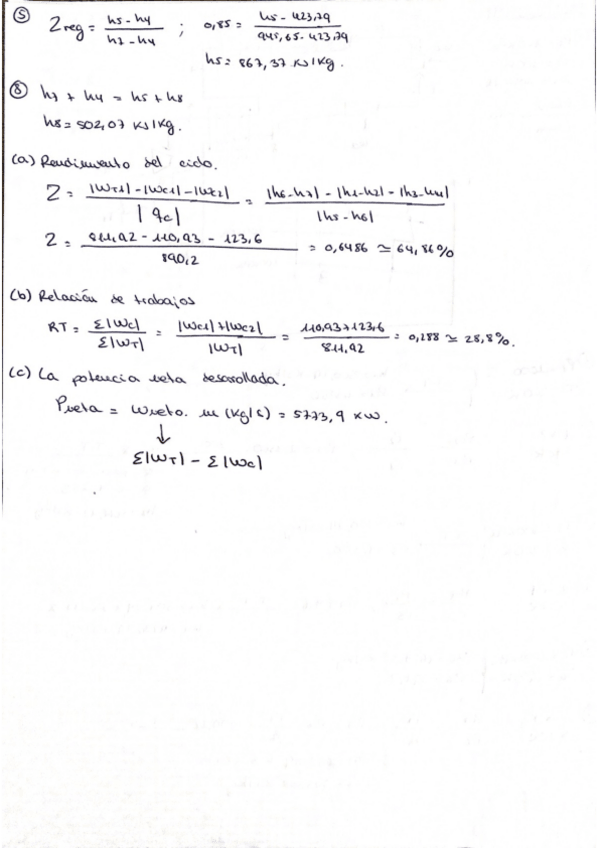 ⑤ Zreg = (h5 - h4) / (h7 - h4) ; 0,85 = (h5 - 423,79) / (945,65 - 423,79)
h5 = 867,37 kJ/kg.
⑧ h7 + h4 = h5 + h8
h8 = 502,07 kJ/kg.
(a) Rendimiento del ciclo.
Z = (|WT1| - |Wc1| - |Wc2|) / |qc| = (|h6-h7| - |h1-h2| - |h3-h4|) / |h5-h6|
Z = (811,92 - 110,93 - 123,6) / 890,2 = 0,6486 ≃ 64,86%
(b) Relación de trabajos
RT = Σ|Wc| / Σ|WT| = (|Wc1| + |Wc2|) / |WT| = (110,93 + 123,6) / 811,92 = 0,288 ≃ 28,8%.
(c) La potencia neta desarollada.
Pneta = Wneto. m (kg/s) = 5773,9 kW.
↓
Σ|WT| - Σ|Wc|